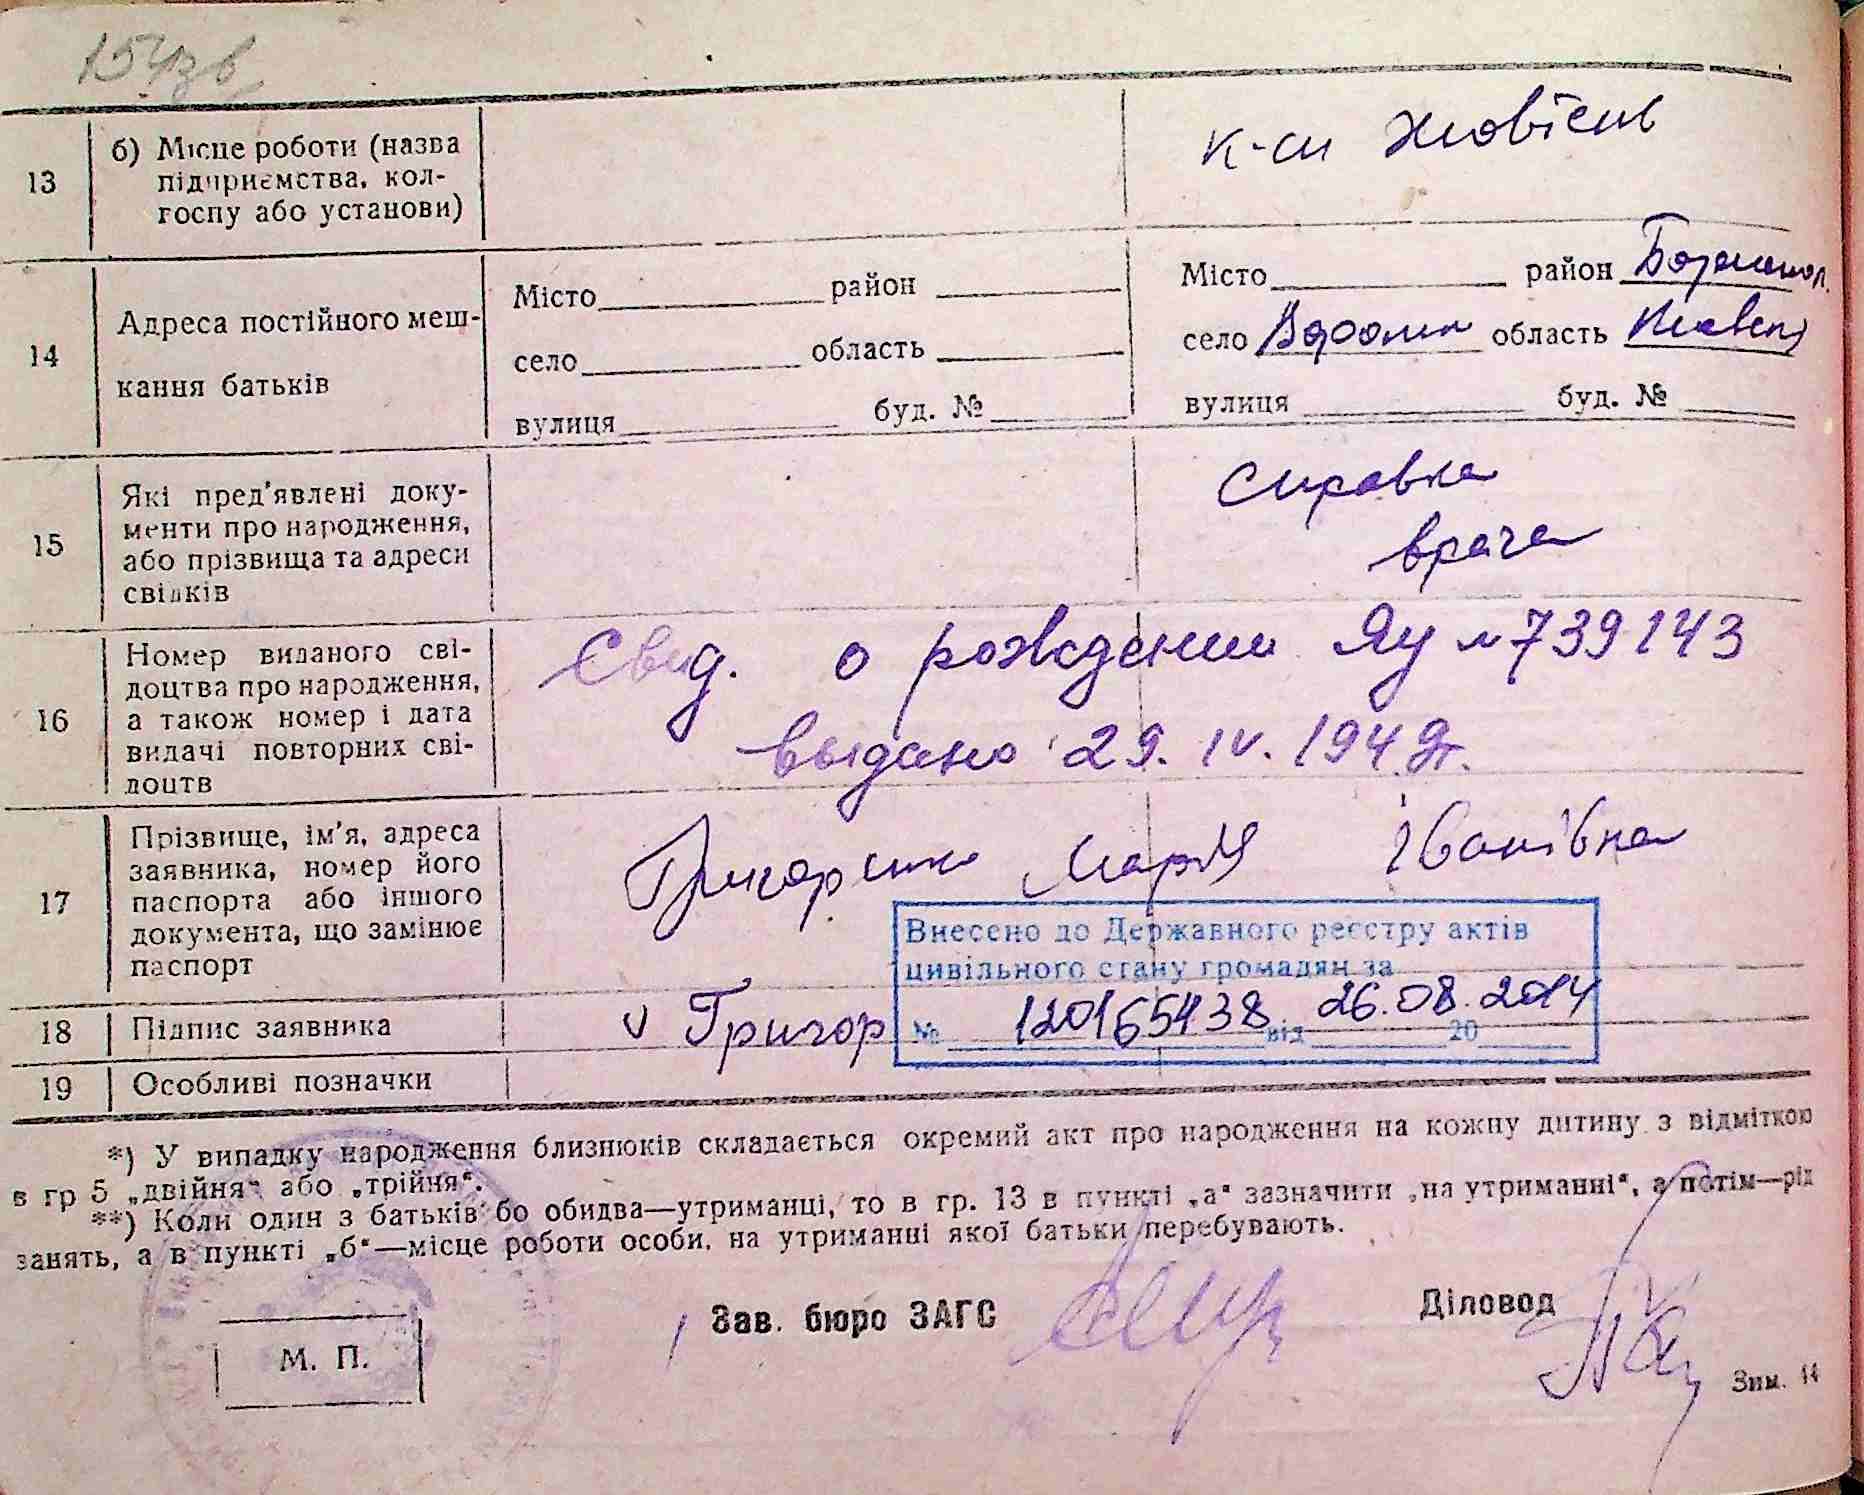 154зв
13
б) Місце роботи (назва
підприємства, кол-
госпу або установи)
к-сп Жовтень
14
Адреса постійного меш-
кання батьків
Місто район
село область
вулиця буд. №
Місто район
село область
вулиця буд. №
15
Які пред'явлені доку-
менти про народження,
або прізвища та адреси
свідків
Справка
врача
16
Номер виданого сві-
доцтва про народження,
а також номер і дата
видачі повторних сві-
доцтв
Свид. о рождении Яу № 739143
выдано 29. IV. 1949г.
17
Прізвище, ім'я, адреса
заявника, номер його
паспорта або іншого
документа, що замінює
паспорт
Григоренко Марія Іванівна
Внесено до Державного реєстру актів
цивільного стану громадян за
№ 120165438 від 26.08.2014 20
18
Підпис заявника
v Григор
19
Особливі позначки
*) У випадку народження близнюків складається окремий акт про народження на кожну дитину з відміткою
в гр 5 „двійня“ або „трійня“.
**) Коли один з батьків бо обидва—утриманці, то в гр. 13 в пункті „а“ зазначити „на утриманні“, а потім—рід
занять, а в пункті „б“—місце роботи особи, на утриманні якої батьки перебувають.
Зав. бюро ЗАГС
Діловод
М. П.
Зим. 14